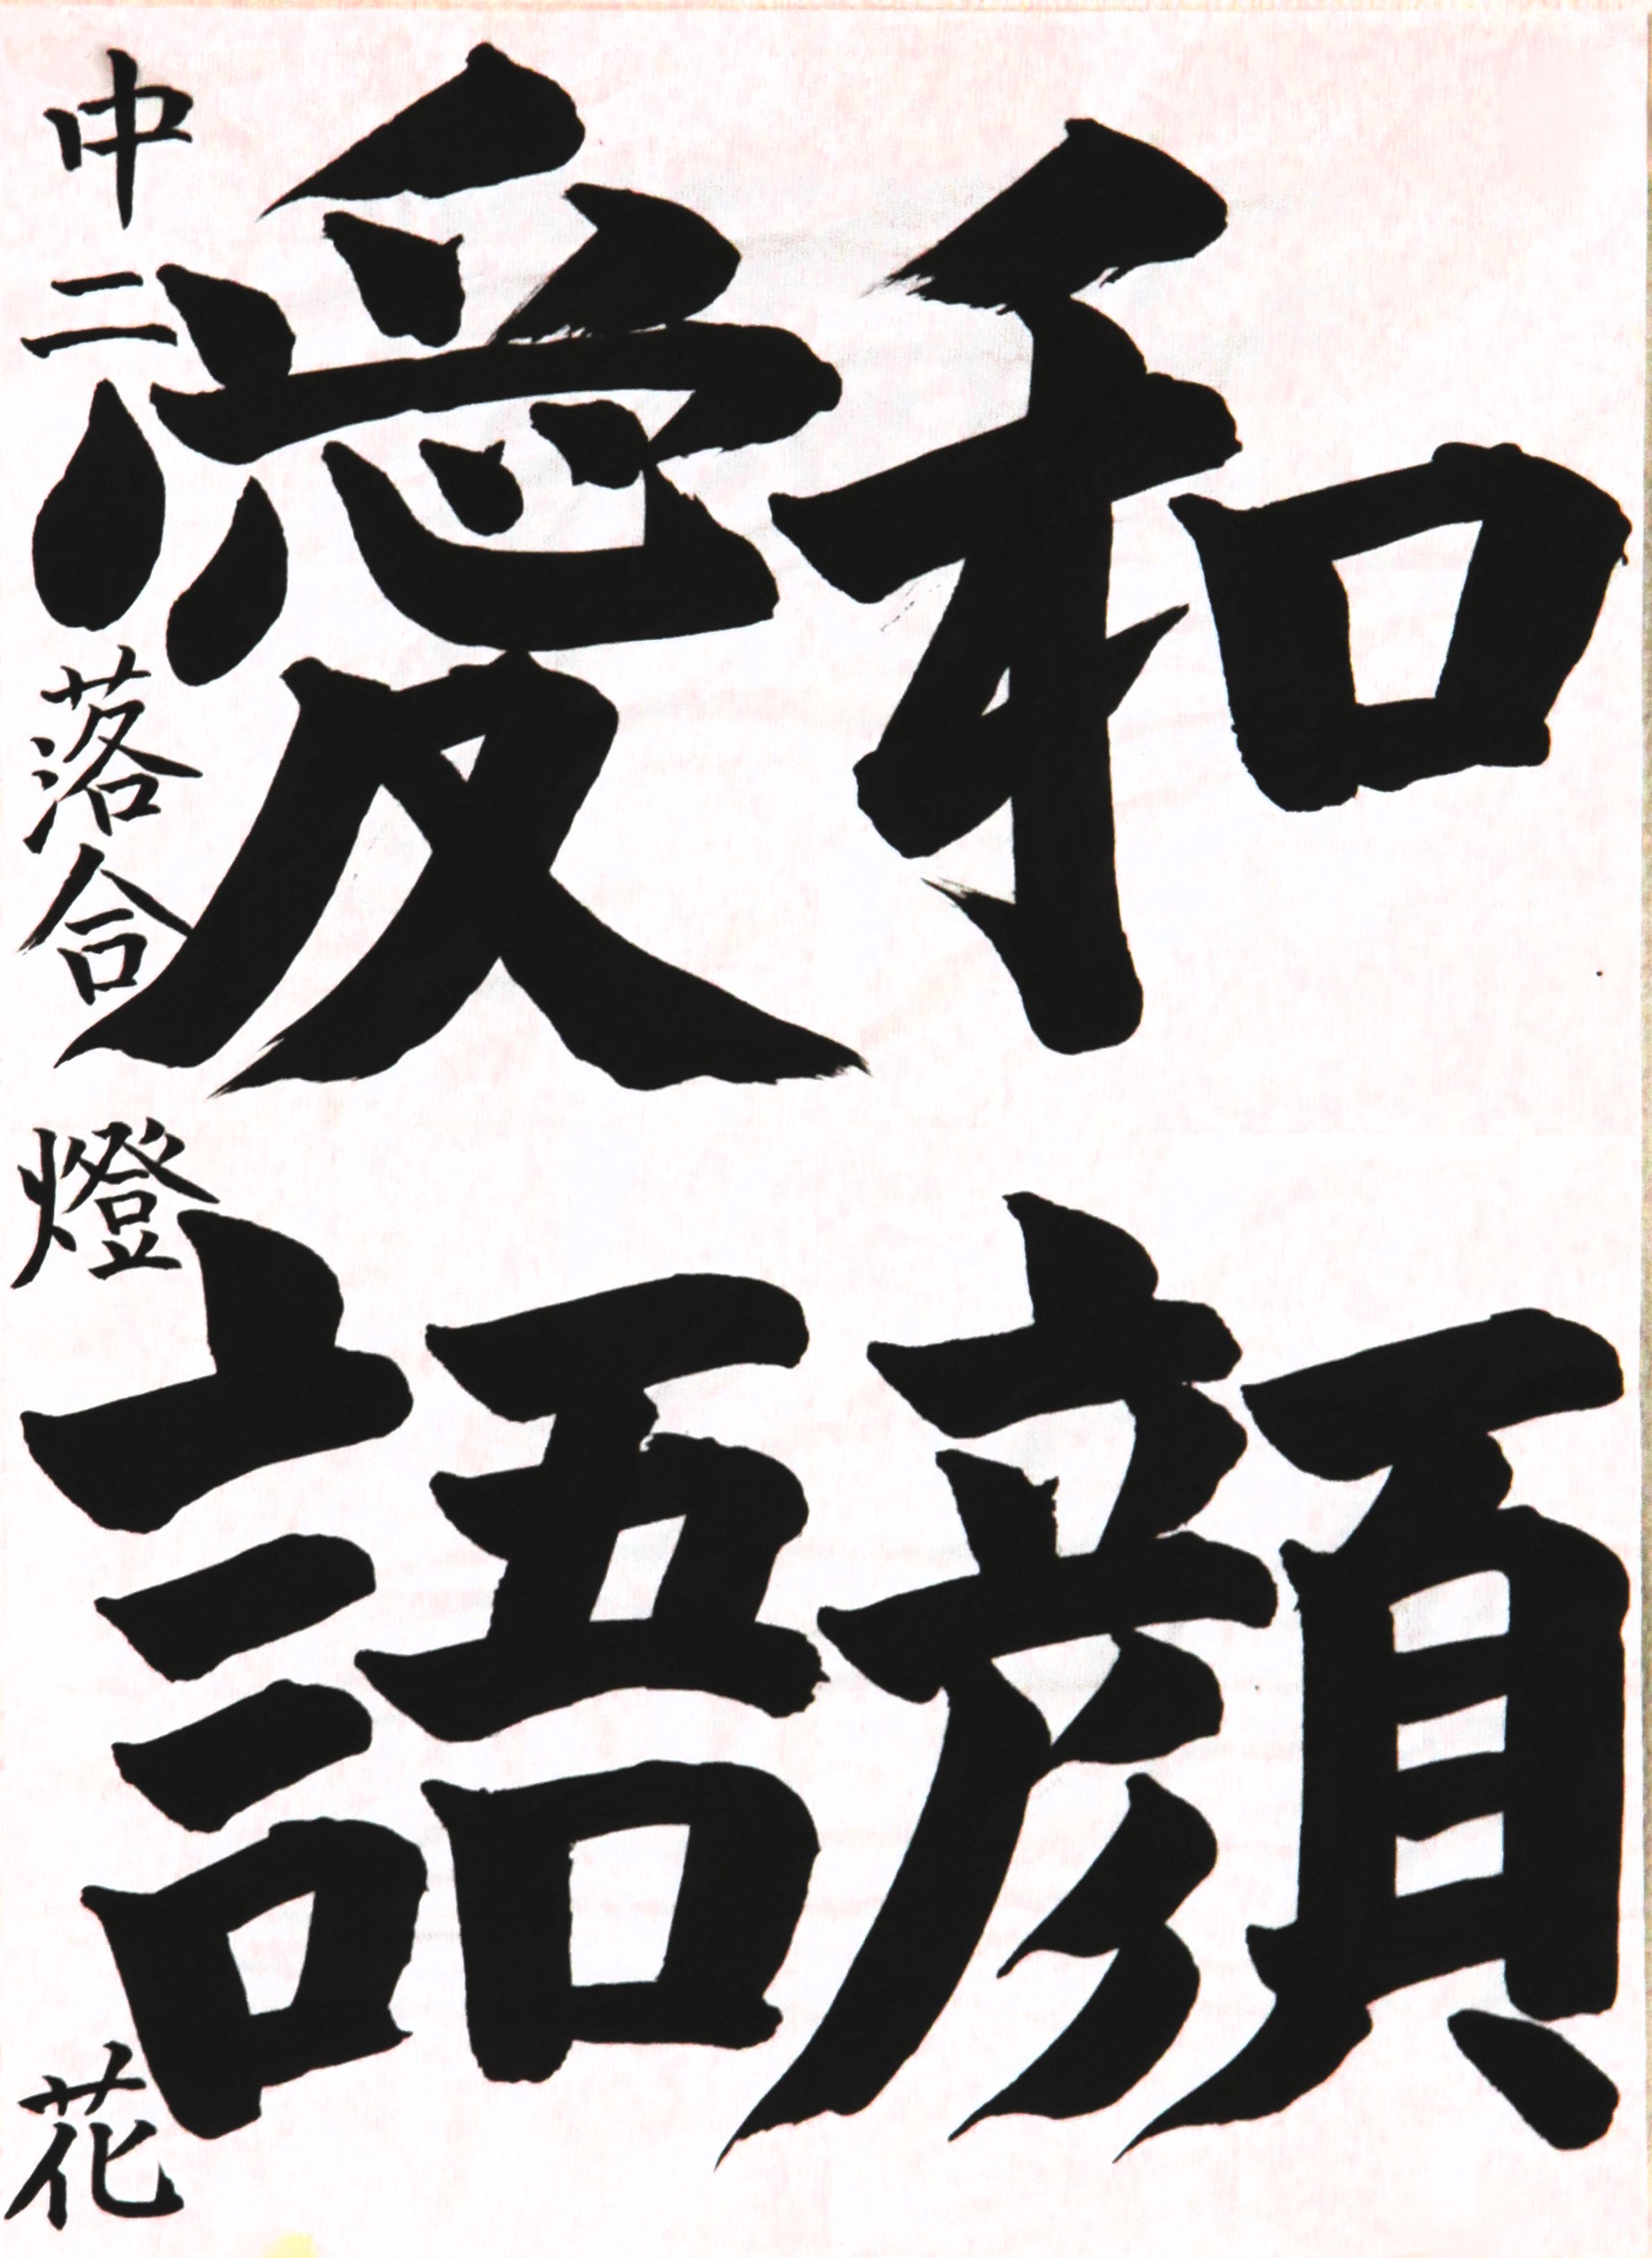 和顔
愛語
中二 落合燈花